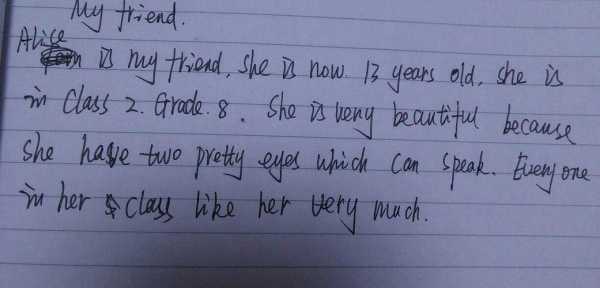 My friend.
Alice
is my friend, she is now 13 years old, she is
in Class 2. Grade. 8. She is very beautiful because
she have two pretty eyes which can speak. Everyone
in her class like her very much.